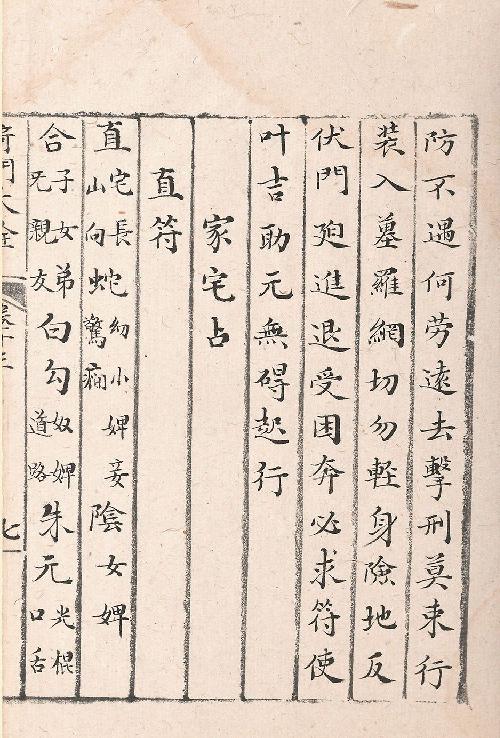 防不遇何劳遠去擊刑莫束行
裝入墓羅網切勿軽身險地反
伏門廹進退受困奔必求符使
叶吉助元無碍起行
家宅占
直符
直宅長山向蛇幼小驚痫婢妾陰女婢
合子女弟兄親友白勾奴婢道路朱元光棍口舌
竒門大全
七